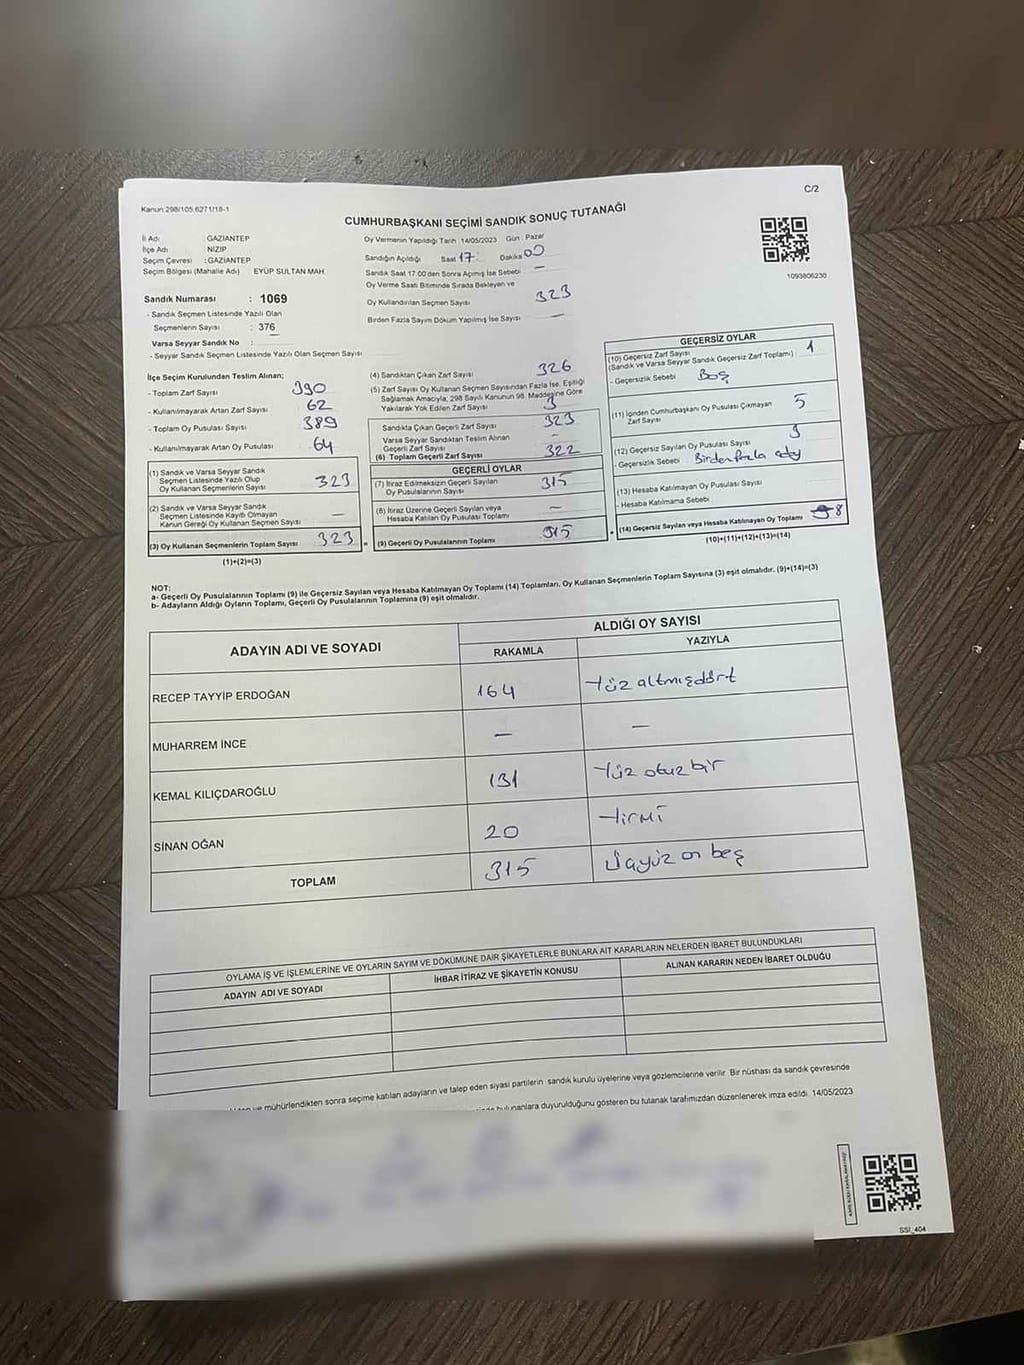 C/2
Kanun:298/105,6271/18-1
CUMHURBAŞKANI SEÇİMİ SANDIK SONUÇ TUTANAĞI
1093806230
İl Adı : GAZİANTEP
İlçe Adı : NİZİP
Seçim Çevresi : GAZİANTEP
Seçim Bölgesi (Mahalle Adı) EYÜP SULTAN MAH.
Sandık Numarası : 1069
- Sandık Seçmen Listesinde Yazılı Olan
Seçmenlerin Sayısı : 376
Varsa Seyyar Sandık No :
- Seyyar Sandık Seçmen Listesinde Yazılı Olan Seçmen Sayısı
Oy Vermenin Yapıldığı Tarih :14/05/2023 Gün : Pazar
Sandığın Açıldığı Saat 17: Dakika 00
Sandık Saat 17:00'den Sonra Açmış İse Sebebi —
Oy Verme Saati Bitiminde Sırada Bekleyen ve
Oy Kullandırılan Seçmen Sayısı 323
Birden Fazla Sayım Döküm Yapılmış İse Sayısı —
İlçe Seçim Kurulundan Teslim Alınan;
- Toplam Zarf Sayısı 390
- Kullanılmayarak Artan Zarf Sayısı 62
- Toplam Oy Pusulası Sayısı 389
- Kullanılmayarak Artan Oy Pusulası 64
(1) Sandık ve Varsa Seyyar Sandık
Seçmen Listesinde Yazılı Olup
Oy Kullanan Seçmenlerin Sayısı 323
(2) Sandık ve Varsa Seyyar Sandık
Seçmen Listesinde Kayıtlı Olmayan
Kanun Gereği Oy Kullanan Seçmen Sayısı —
(3) Oy Kullanan Seçmenlerin Toplam Sayısı 323 =
(1)+(2)=(3)
(4) Sandıktan Çıkan Zarf Sayısı 326
(5) Zarf Sayısı Oy Kullanan Seçmen Sayısından Fazla İse, Eşitliği
Sağlamak Amacıyla, 298 Sayılı Kanunun 98. Maddesine Göre
Yakılarak Yok Edilen Zarf Sayısı 3
Sandıkta Çıkan Geçerli Zarf Sayısı 323
Varsa Seyyar Sandıktan Teslim Alınan
Geçerli Zarf Sayısı —
(6) Toplam Geçerli Zarf Sayısı 322
GEÇERLİ OYLAR
(7) İtiraz Edilmeksizin Geçerli Sayılan
Oy Pusulalarının Sayısı 315
(8) İtiraz Üzerine Geçerli Sayılan ve
Hesaba Katılan Oy Pusulası Toplamı —
(9) Geçerli Oy Pusulalarının Toplamı 315 +
GEÇERSİZ OYLAR
(10) Geçersiz Zarf Sayısı
(Sandık ve Varsa Seyyar Sandık Geçersiz Zarf Toplamı) 1
- Geçersizlik Sebebi Boş
(11) İçinden Cumhurbaşkanı Oy Pusulası Çıkmayan
Zarf Sayısı 5
(12) Geçersiz Sayılan Oy Pusulası Sayısı
- Geçersizlik Sebebi Birden fazla
(13) Hesaba Katılmayan Oy Pusulası Sayısı
- Hesaba Katılmama Sebebi
(14) Geçersiz Sayılan veya Hesaba Katılmayan Oy Toplamı 8
(10)+(11)+(12)+(13)=(14)
NOT:
a- Geçerli Oy Pusulalarının Toplamı (9) ile Geçersiz Sayılan veya Hesaba Katılmayan Oy Toplamı (14) Toplamları, Oy Kullanan Seçmenlerin Toplam Sayısına (3) eşit olmalıdır. (9)+(14)=(3)
b- Adayların Aldığı Oyların Toplamı, Geçerli Oy Pusulalarının Toplamına (9) eşit olmalıdır.
ADAYIN ADI VE SOYADI
ALDIĞI OY SAYISI
RAKAMLA YAZIYLA
RECEP TAYYİP ERDOĞAN 164 Yüz altmışdört
MUHARREM İNCE — —
KEMAL KILIÇDAROĞLU 131 Yüz otuz bir
SİNAN OĞAN 20 Yirmi
TOPLAM 315 Üçyüz on beş
OYLAMA İŞ VE İŞLEMLERİNE VE OYLARIN SAYIM VE DÖKÜMÜNE DAİR ŞİKAYETLERLE BUNLARA AİT KARARLARIN NELERDEN İBARET BULUNDUKLARI
ADAYIN ADI VE SOYADI İHBAR İTİRAZ VE ŞİKAYETİN KONUSU ALINAN KARARIN NEDEN İBARET OLDUĞU
ve mühürlendikten sonra seçime katılan adayların ve talep eden siyasi partilerin sandık kurulu üyelerine veya gözlemcilerine verilir. Bir nüshası da sandık çevresinde
bulunanlara duyurulduğunu gösteren bu tutanak tarafımızdan düzenlenerek imza edildi. 14/05/2023
SSİ_404